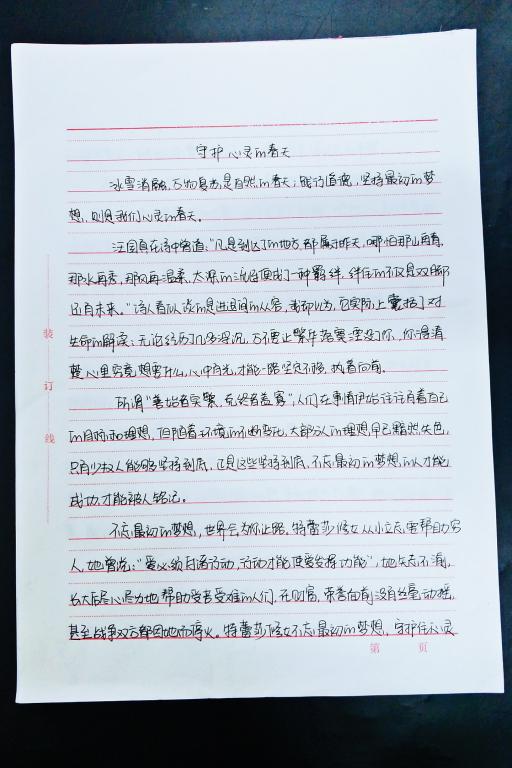 守护心灵的春天
冰雪消融,万物复苏是自然的春天;践行道德,坚持最初的梦
想,则是我们心灵的春天。
汪国真在诗中写道:"凡是到达的地方,都属于昨天,哪怕那山再青,
那水再秀,那风再温柔,太深的流连便成了一种羁绊,绊住的不仅是双脚
还有未来。"诗人看似谈的是进退间的从容,我却以为,它实际上囊括了对
生命的解读:无论经历几多浮沉,万不要让繁华落寞湮没了你,你得清
楚心里究竟想要什么,心中有光,才能一路坚定不移,执着向前。
所谓"善始者实繁,克终者盖寡",人们在事情开始往往有着自己
的目标和理想,但随着环境的不断变化,大部分人的理想早已黯然失色,
只有少数人能够坚持到底,正是这些坚持到底,不忘最初的梦想的人才能
成功,才能被人铭记。
不忘最初的梦想,世界会为你让路。特蕾莎修女从小立志要帮助穷
人,她曾说:"爱必须付诸行动,行动才能使爱发挥功能",她矢志不渝,
长大后尽心尽力地帮助受苦受难的人们,在财富、荣誉面前没有丝毫动摇,
甚至战争双方都因她而停火。特蕾莎修女不忘最初的梦想,守护住心灵
装
订
线
第 页